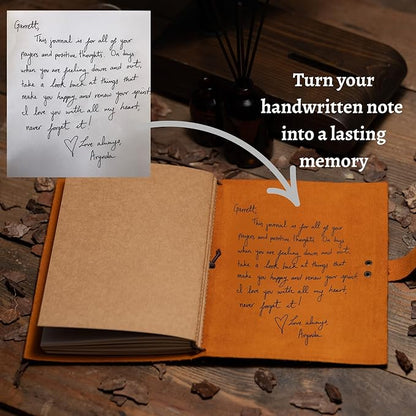 Garrett,
This journal is for all of your
prayers and positive thoughts. On days
when you are feeling down and out,
take a look back at things that
make you happy, and renew your spirit.
I love you with all my heart,
never forget it!
Love always,
Turn your
handwritten note
into a lasting
memory
Garrett,
This journal is for all of your
prayers and positive thoughts. On days
when you are feeling down and out,
take a look back at things that
make you happy, and renew your spirit.
I love you with all my heart,
never forget it!
Love always,